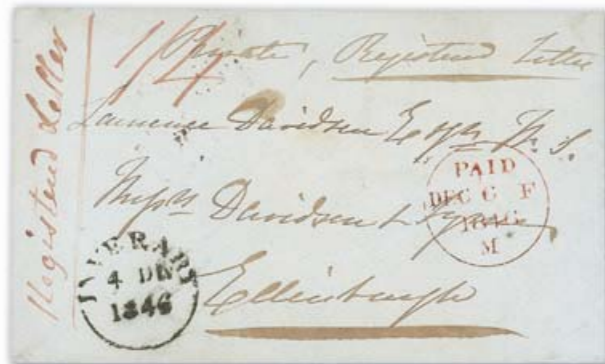 Registered Letter
1/4
Private, Registered Letter
Lawrence Davidson Esqr W.S.
Messrs Davidson &
Edinburgh
PAID
DEC 6 F
1846
M
INVERARY
4 DE
1846